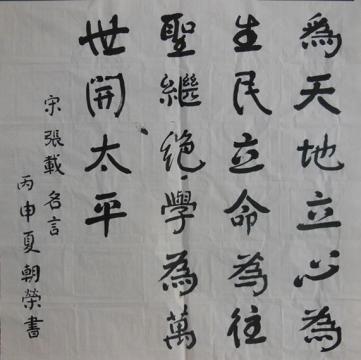 為天地立心為
生民立命為往
聖繼絕學為萬
世開太平
宋張載名言
丙申夏朝榮書